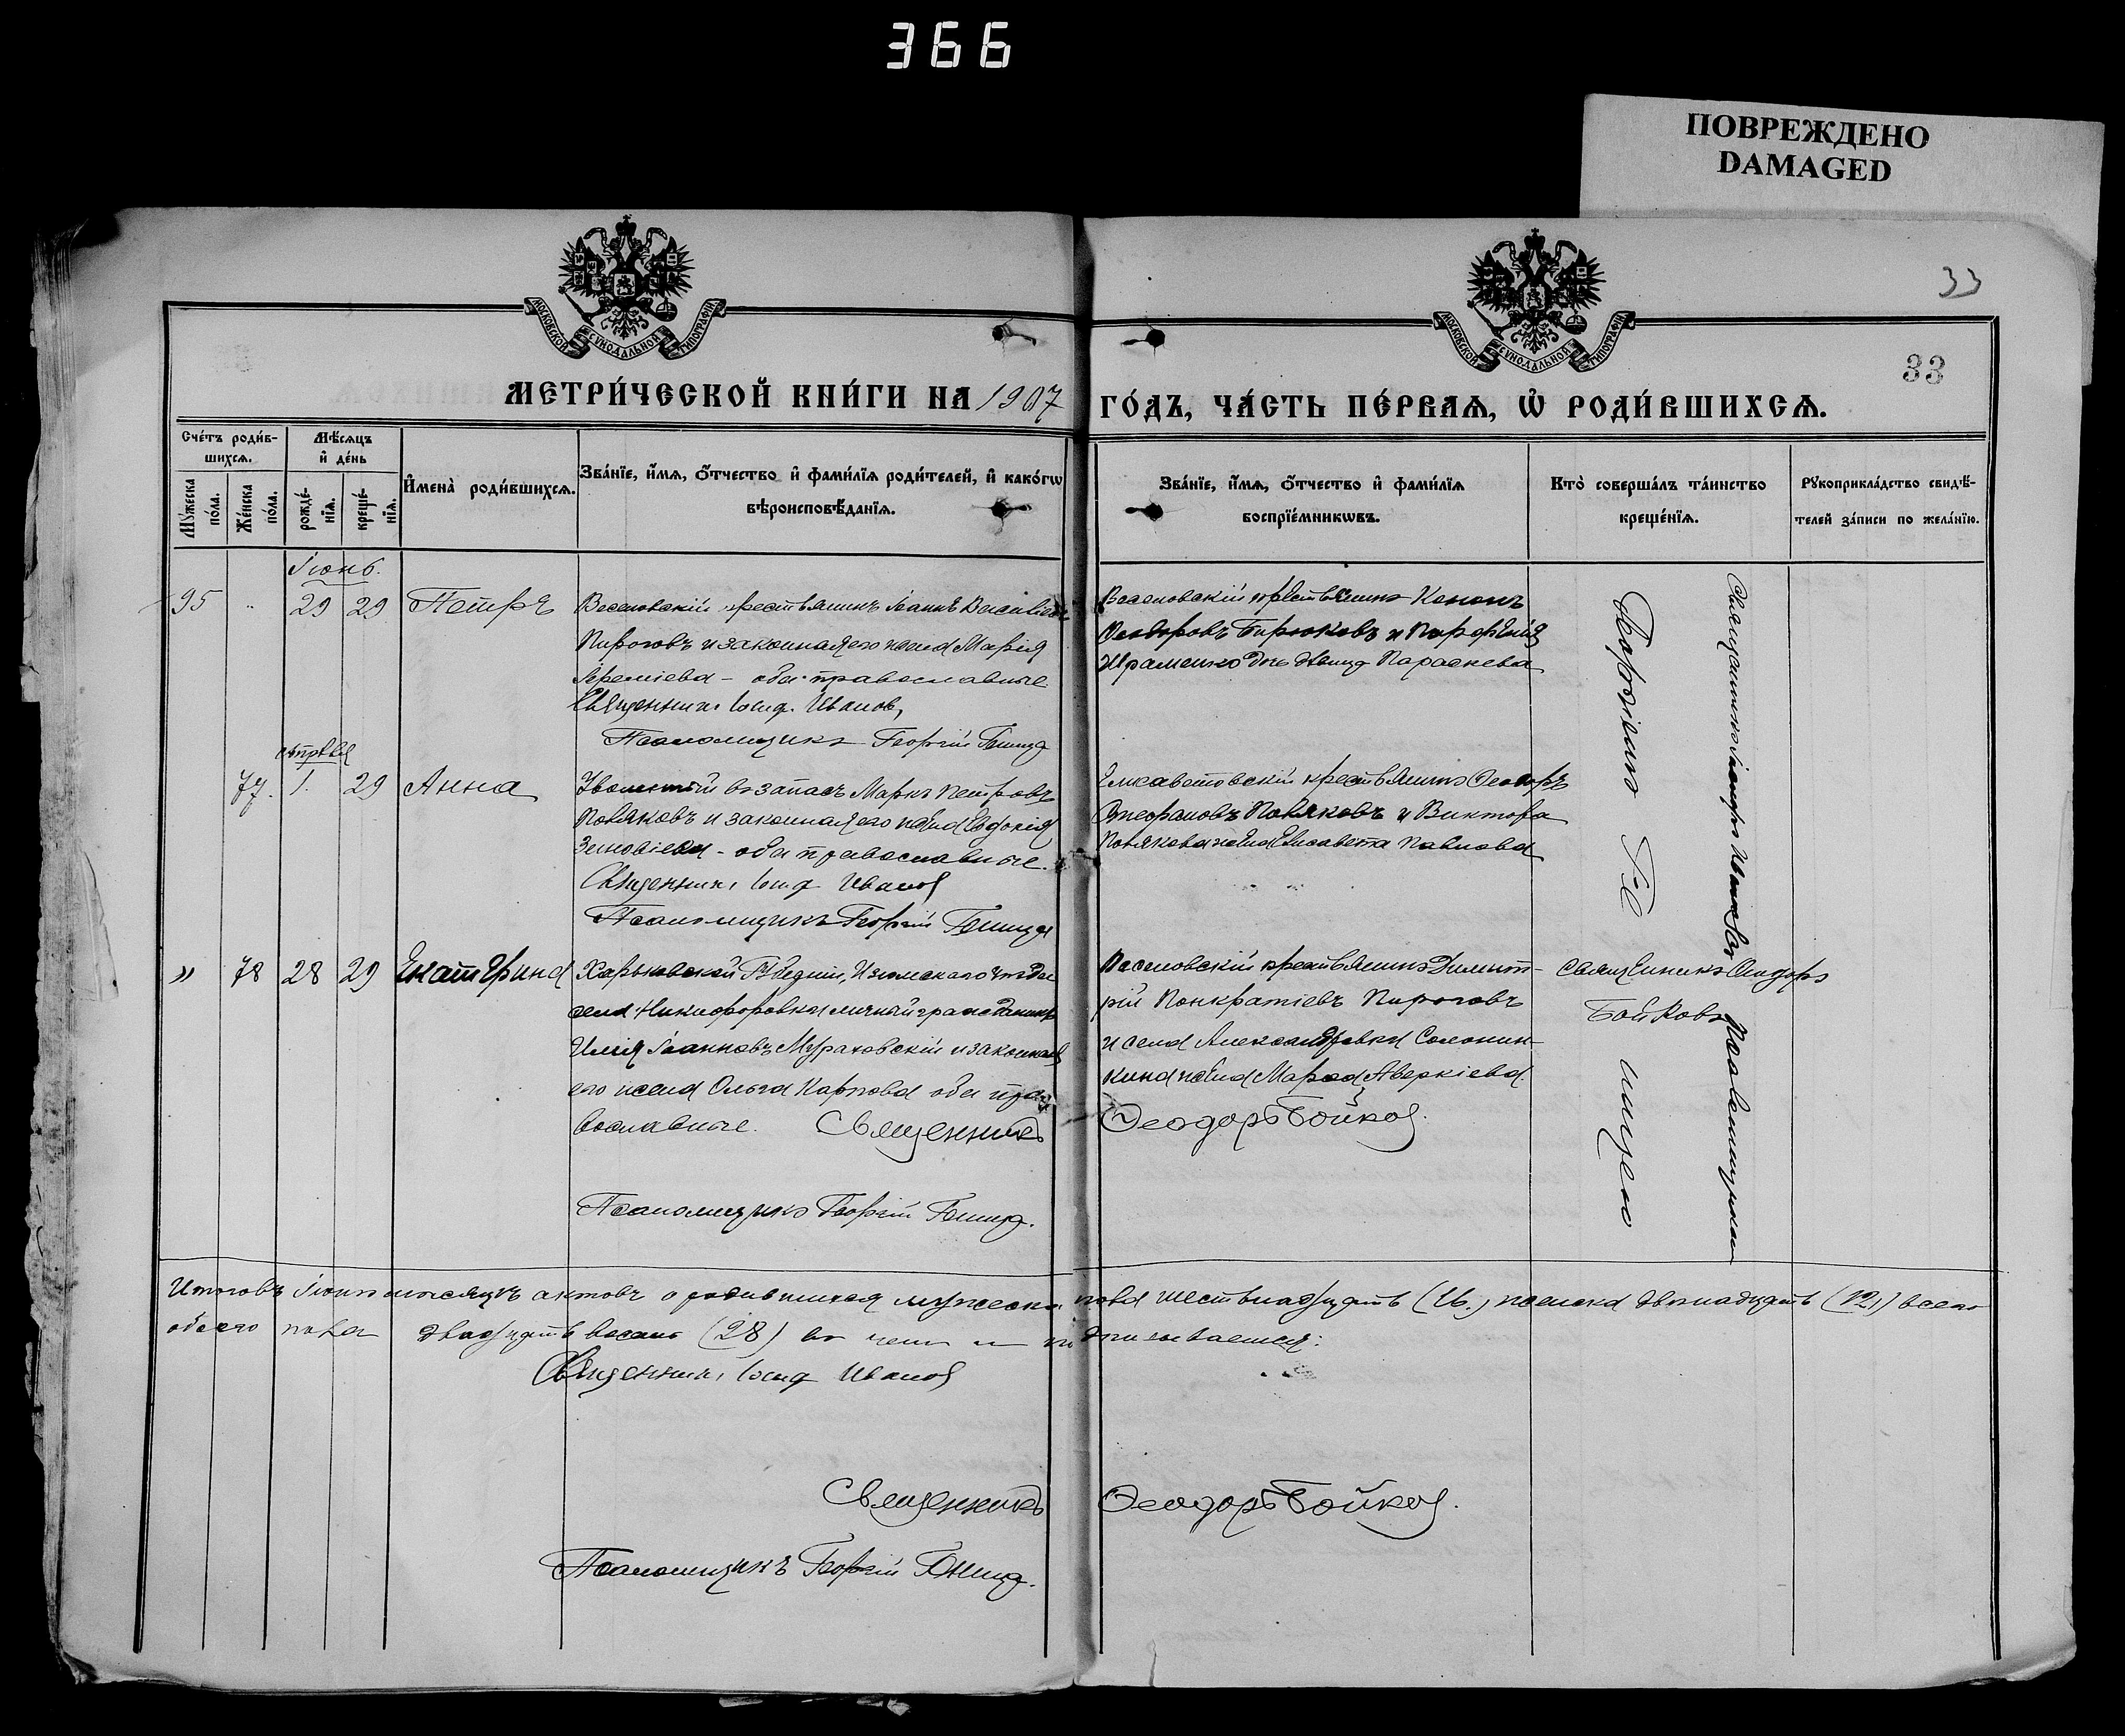 366
ПОВРЕЖДЕНО
DAMAGED
33
33
МОСКОВСКОЙ СУНОДАЛЬНОЙ ТИПОГРАФІИ
МОСКОВСКОЙ СУНОДАЛЬНОЙ ТИПОГРАФІИ
МЕТРИ́ЧЕСКОЙ КНИ́ГИ НА 1907 ГО́ДЪ, ЧА́СТЬ ПЕ́РВАѦ, Ѡ҆ РОДИ́ВШИХСѦ.
Сче́тъ роди́в-
шихсѧ.
Мѣ́сѧцъ
и҆ де́нь
Мꙋ́жеска
по́ла.
Же́нска
по́ла.
рожде́-
нїѧ.
креще́-
нїѧ.
И҆мена̀ роди́вшихсѧ.
Зва́нїе, и҆́мѧ, ѻ҆́тчество и҆ фами́лїѧ роди́телей, и҆ како́гѡ
вѣроисповѣ́данїѧ.
Зва́нїе, и҆́мѧ, ѻ҆́тчество и҆ фами́лїѧ
воспрїе́мникѡвъ.
Кто̀ соверша́лъ та́инство
креще́нїѧ.
Рꙋкоприкла́дство свидѣ́-
телей за́писи по жела́нїю.
Іюнь.
95 " 29 29 Петръ
Веселовскій крестьянинъ Іоаннъ Василіевъ
Пироговъ и законная его жена Марія
Іереміева - оба православные
Священникъ Іоиф. Иванов,
Псаломщикъ Георгій
Веселовскій крестьянинъ Кононъ
Ѳеодоровъ Бирюковъ и Порфирія
дѣвица Параскева
77. 1. 29 Анна
въ запасъ Маркъ Петровъ
Поляковъ и законная его жена Евдокія
Зиновіева - оба православные.
Священникъ Іоиф Иванов
Псаломщикъ Георгій
Елисаветовскій крестьянинъ Ѳеодоръ
Стефановъ Поляковъ и Виктора
Полякова жена Елисавета Павлова
" 78 28 29 Екатерина
Харьковской Губерніи, Изюмскаго уѣзда
села Никифоровки личный гражданинъ
Илія Іоанновъ Мураховскій и законная
его жена Ольга Карпова оба пра-
вославные. Священникъ Ѳеодоръ Бойков.
Псаломщикъ Георгій
Веселовскій крестьянинъ Димит-
рій Понкратіевъ Пироговъ
и села Александровки Солонин-
кина жена Марѳа Аверкіева.
Священникъ Ѳеодоръ
Бойковъ
Итого въ Іюнѣ мѣсяцѣ актовъ о родившихся мужеска пола шестнадцать (16.) женска двѣнадцать (12) всего
обоего пола двадцать восемь (28) въ чемъ и подписываемся:
Священникъ Іоиф Иванов
Священникъ Ѳеодоръ Бойков.
Псаломщикъ Георгій